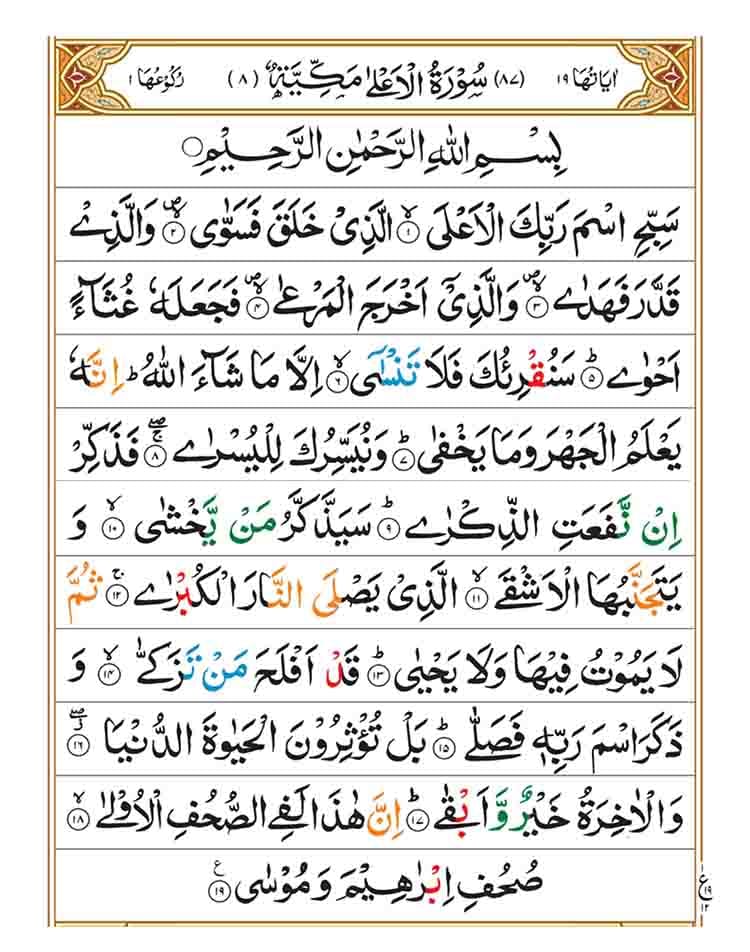 اٰیَاتُهَا ١٩ (٨٧) سُوْرَةُ الْاَعْلٰى مَكِّیَّةٌ (٨) رُكُوْعُهَا ١
بِسْمِ اللّٰهِ الرَّحْمٰنِ الرَّحِیْمِ ○
سَبِّحِ اسْمَ رَبِّكَ الْاَعْلَى ۙ‏﴿١﴾ الَّذِیْ خَلَقَ فَسَوّٰى ۪ۙ‏﴿٢﴾ وَالَّذِیْ
قَدَّرَ فَهَدٰى ۪ۙ‏﴿٣﴾ وَالَّذِیْۤ اَخْرَجَ الْمَرْعٰى ۪ۙ‏﴿٤﴾ فَجَعَلَهٗ غُثَآءً
اَحْوٰى ؕ‏﴿٥﴾ سَنُقْرِئُكَ فَلَا تَنْسٰۤى ۙ‏﴿٦﴾ اِلَّا مَا شَآءَ اللّٰهُ ؕ اِنَّهٗ
یَعْلَمُ الْجَهْرَ وَمَا یَخْفٰى ؕ‏﴿٧﴾ وَنُیَسِّرُكَ لِلْیُسْرٰى ۚۖ‏﴿٨﴾ فَذَكِّرْ
اِنْ نَّفَعَتِ الذِّكْرٰى ؕ‏﴿٩﴾ سَیَذَّكَّرُ مَنْ یَّخْشٰى ۙ‏﴿١٠﴾ وَ
یَتَجَنَّبُهَا الْاَشْقَى ۙ‏﴿١١﴾ الَّذِیْ یَصْلَى النَّارَ الْكُبْرٰى ۚ‏﴿١٢﴾ ثُمَّ
لَا یَمُوْتُ فِیْهَا وَلَا یَحْیٰى ؕ‏﴿١٣﴾ قَدْ اَفْلَحَ مَنْ تَزَكّٰى ۙ‏﴿١٤﴾ وَ
ذَكَرَ اسْمَ رَبِّهٖ فَصَلّٰى ؕ‏﴿١٥﴾ بَلْ تُؤْثِرُوْنَ الْحَیٰوةَ الدُّنْیَا ۖ‏﴿١٦﴾
وَالْاٰخِرَةُ خَیْرٌ وَّاَبْقٰى ؕ‏﴿١٧﴾ اِنَّ هٰذَا لَفِی الصُّحُفِ الْاُوْلٰى ۙ‏﴿١٨﴾
صُحُفِ اِبْرٰهِیْمَ وَمُوْسٰى ﴿١٩﴾ ع
ع ١٩ ١٢